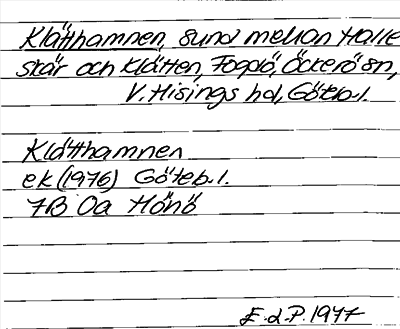 Klåtthamnen, sund mellan Halle
skär och Klåtten, Fogdö, Öckerö sn,
V. Hisings hd, Göteb.l.
Klåtthamnen
ek (1976) Göteb.l.
7B 0a Hönö
E.d.P. 1977